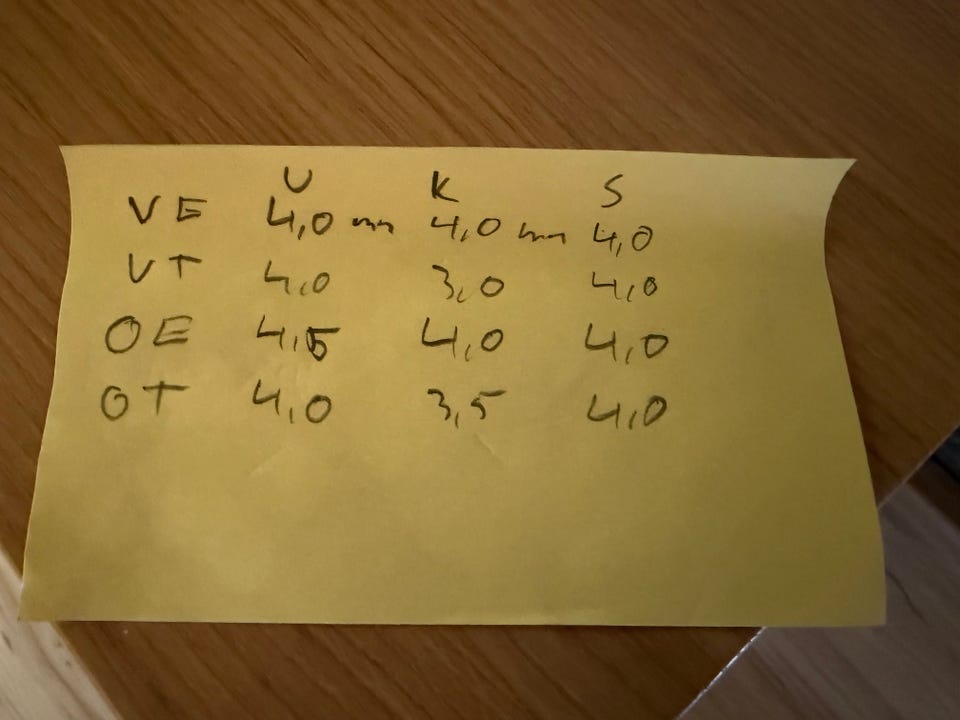 U K S
VE 4,0 mm 4,0 mm 4,0
VT 4,0 3,0 4,0
OE 4,5 4,0 4,0
OT 4,0 3,5 4,0